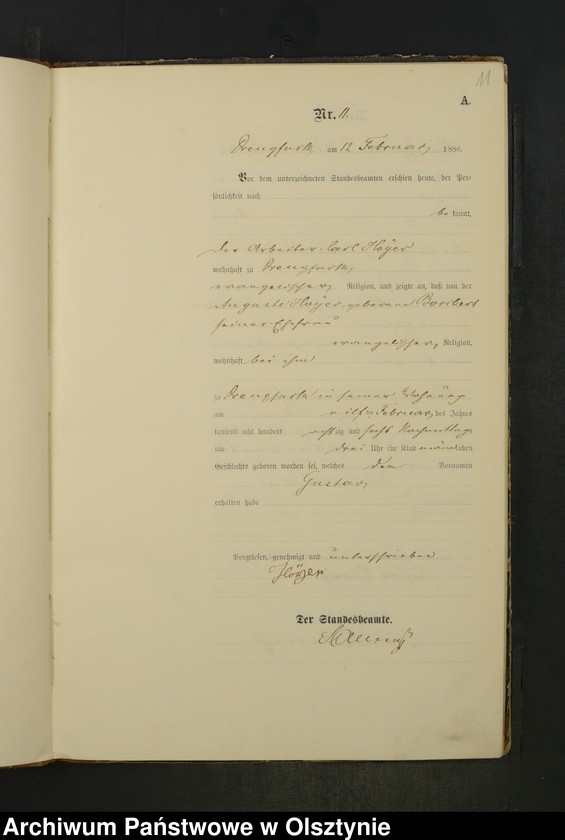 11
A.
Nr. 11.
Drengfurth am 12 Februar 1886.
Vor dem unterzeichneten Standesbeamten erschien heute, der Per-
sönlichkeit nach
be kannt,
der Arbeiter Carl Hoyer
wohnhaft zu Drengfurth
evangelischer Religion, und zeigte an, daß von der
Auguste Hoyer geborene Borchert
seiner Ehefrau
evangelischer Religion,
wohnhaft bei ihm
zu Drengfurth in seiner Wohnung
am elften Februar des Jahres
tausend acht hundert achtzig und sechs Nachmittags
um drei Uhr ein Kind männlichen
Geschlechts geboren worden sei, welches den Vornamen
Gustav
erhalten habe
Vorgelesen, genehmigt und unterschrieben
Höyer
Der Standesbeamte.
Archiwum Państwowe w Olsztynie